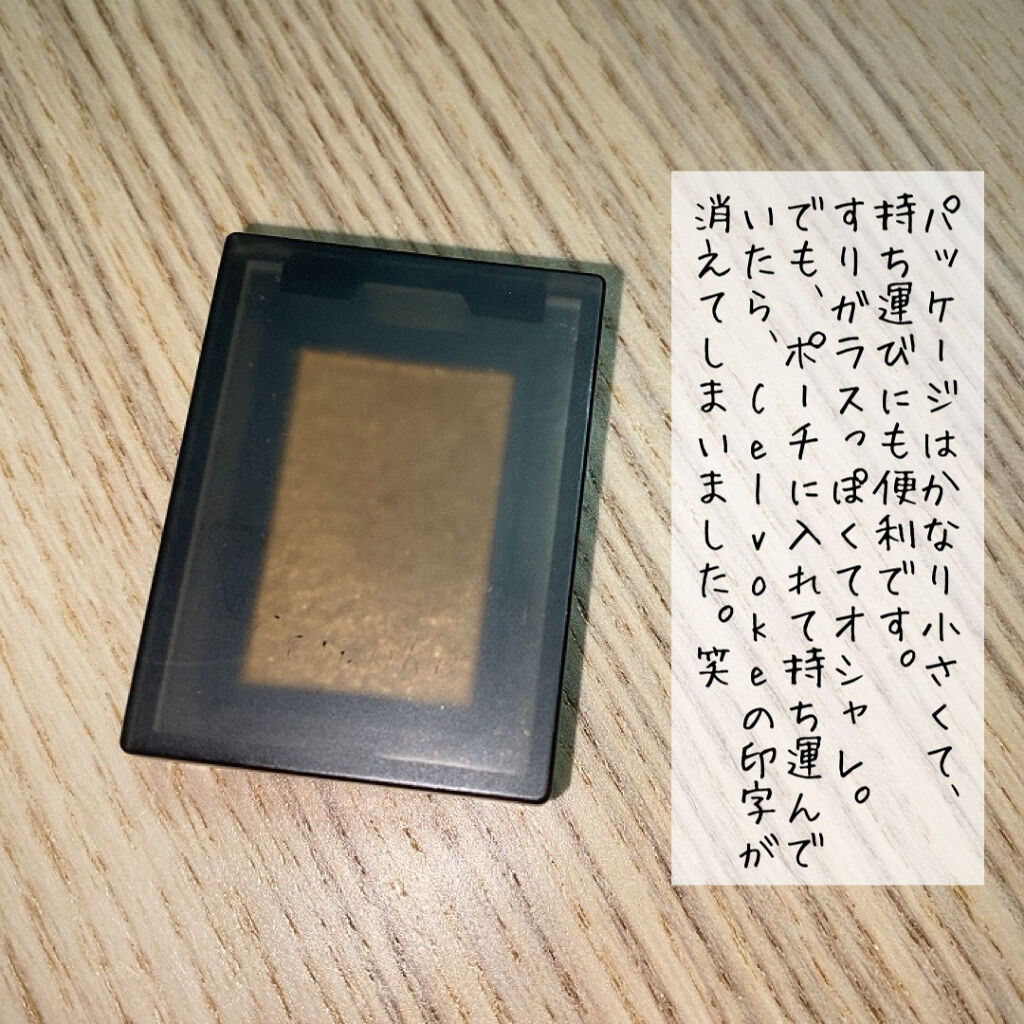 パッケージはかなり小さくて、
持ち運びにも便利です。
すりガラスっぽくてオシャレ。
でも、ポーチに入れて持ち運んで
いたら、Celvokeの印字が
消えてしまいました。笑